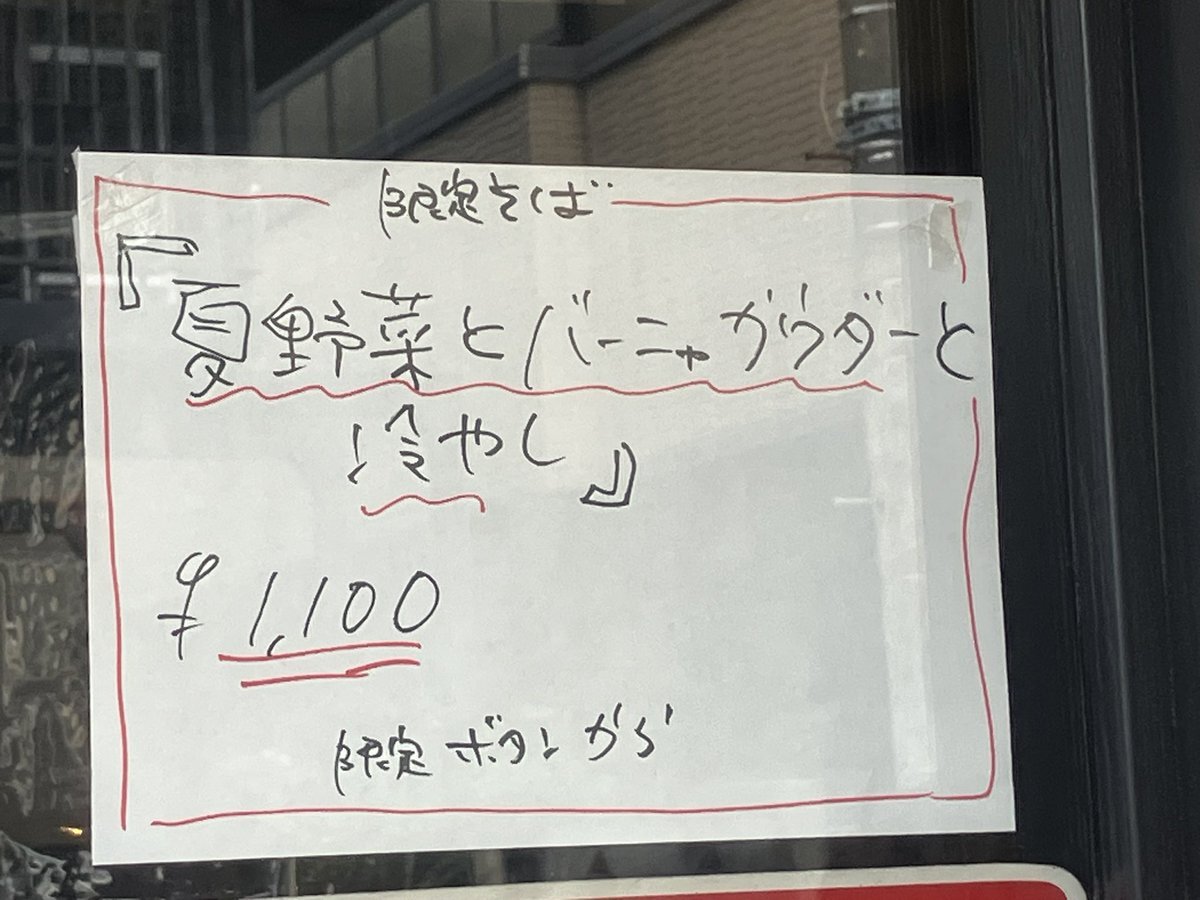 限定そば
『夏野菜とバーニャガウダーと
冷やし』
¥1,100
限定ボタンから